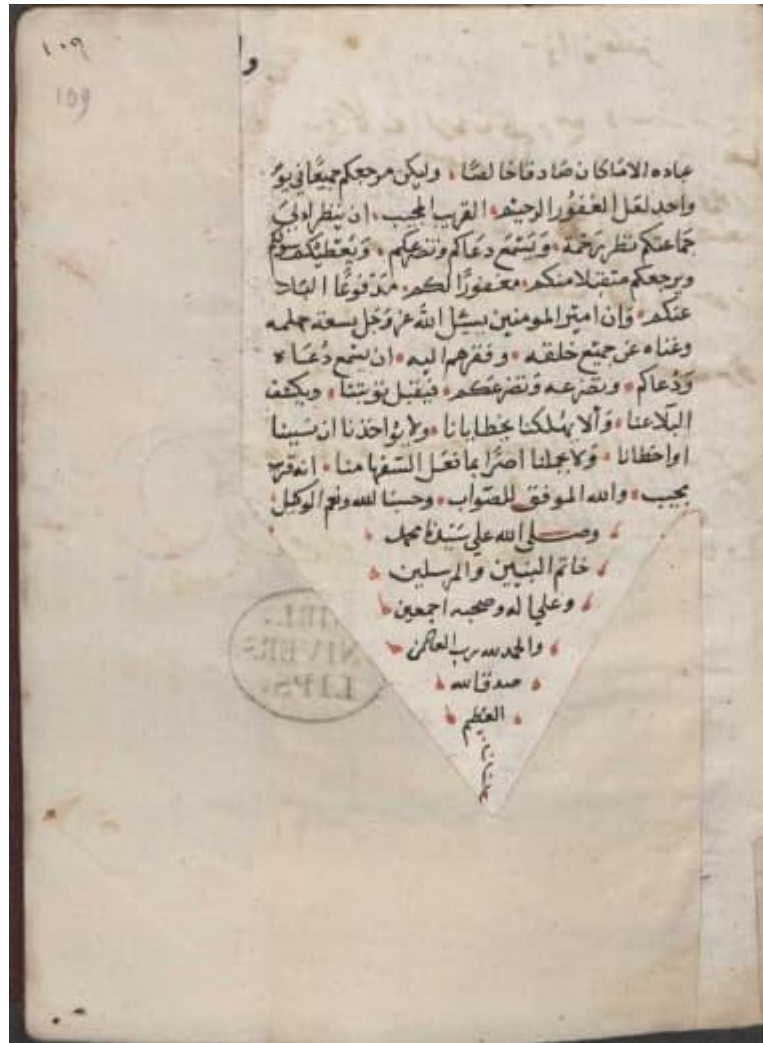 ١٠٩
109
و
عباده الا ما كان صادقا خالصا ، وليكن مرجعكم جميعا في يوم
واحد لعل الغفور الرحيم ، القريب المجيب ، ان ينظر الى
جماعتكم نظر رحمة ، ويستمع دعاكم وتضرعكم ، ويعطيكم سولكم
ويرجعكم متقبلا منكم ، مغفورًا لكم ، مدفوعًا البلا
عنكم ، وان امير المومنين يسئل الله عز وجل بسعة حلمه
وغناه عن جميع خلقه ، وفقرهم اليه ، ان يسمع دعاه
ودعاكم ، وتضرعه وتضرعكم ، فيقبل توبتنا ، ويكشف
البلا عنا ، وألا يهلكنا بخطايانا ، ولا يؤاخذنا ان نسينا
او اخطانا ، ولا يحملنا اصرًا بما فعل السفها منا ، انه قريب
مجيب ، والله الموفق للصواب ، وحسبنا الله ونعم الوكيل
وصلى الله علي سيدنا محمد
خاتم النبيين والمرسلين
وعلي اله وصحبه اجمعين
والحمد لله رب العالمين
صدق الله
العظيم
BIBL.
UNIVERS
LIPS.